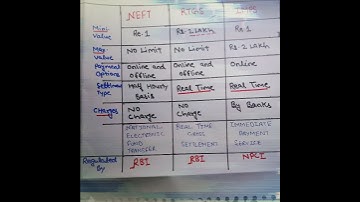 NEFT RTGS IMPS
Mini. Value Re.1 Rs.2 Lakh Re.1
Max. Value No Limit No Limit Rs.2 Lakh
Payment Options Online and Offline Online and Offline Online
Settlement Type Half Hourly Basis Real Time Real Time
Charges No Charge No Charge By Banks
NATIONAL ELECTRONIC FUND TRANSFER REAL TIME GROSS SETTLEMENT IMMEDIATE PAYMENT SERVICE
Regulated By RBI RBI NPCI